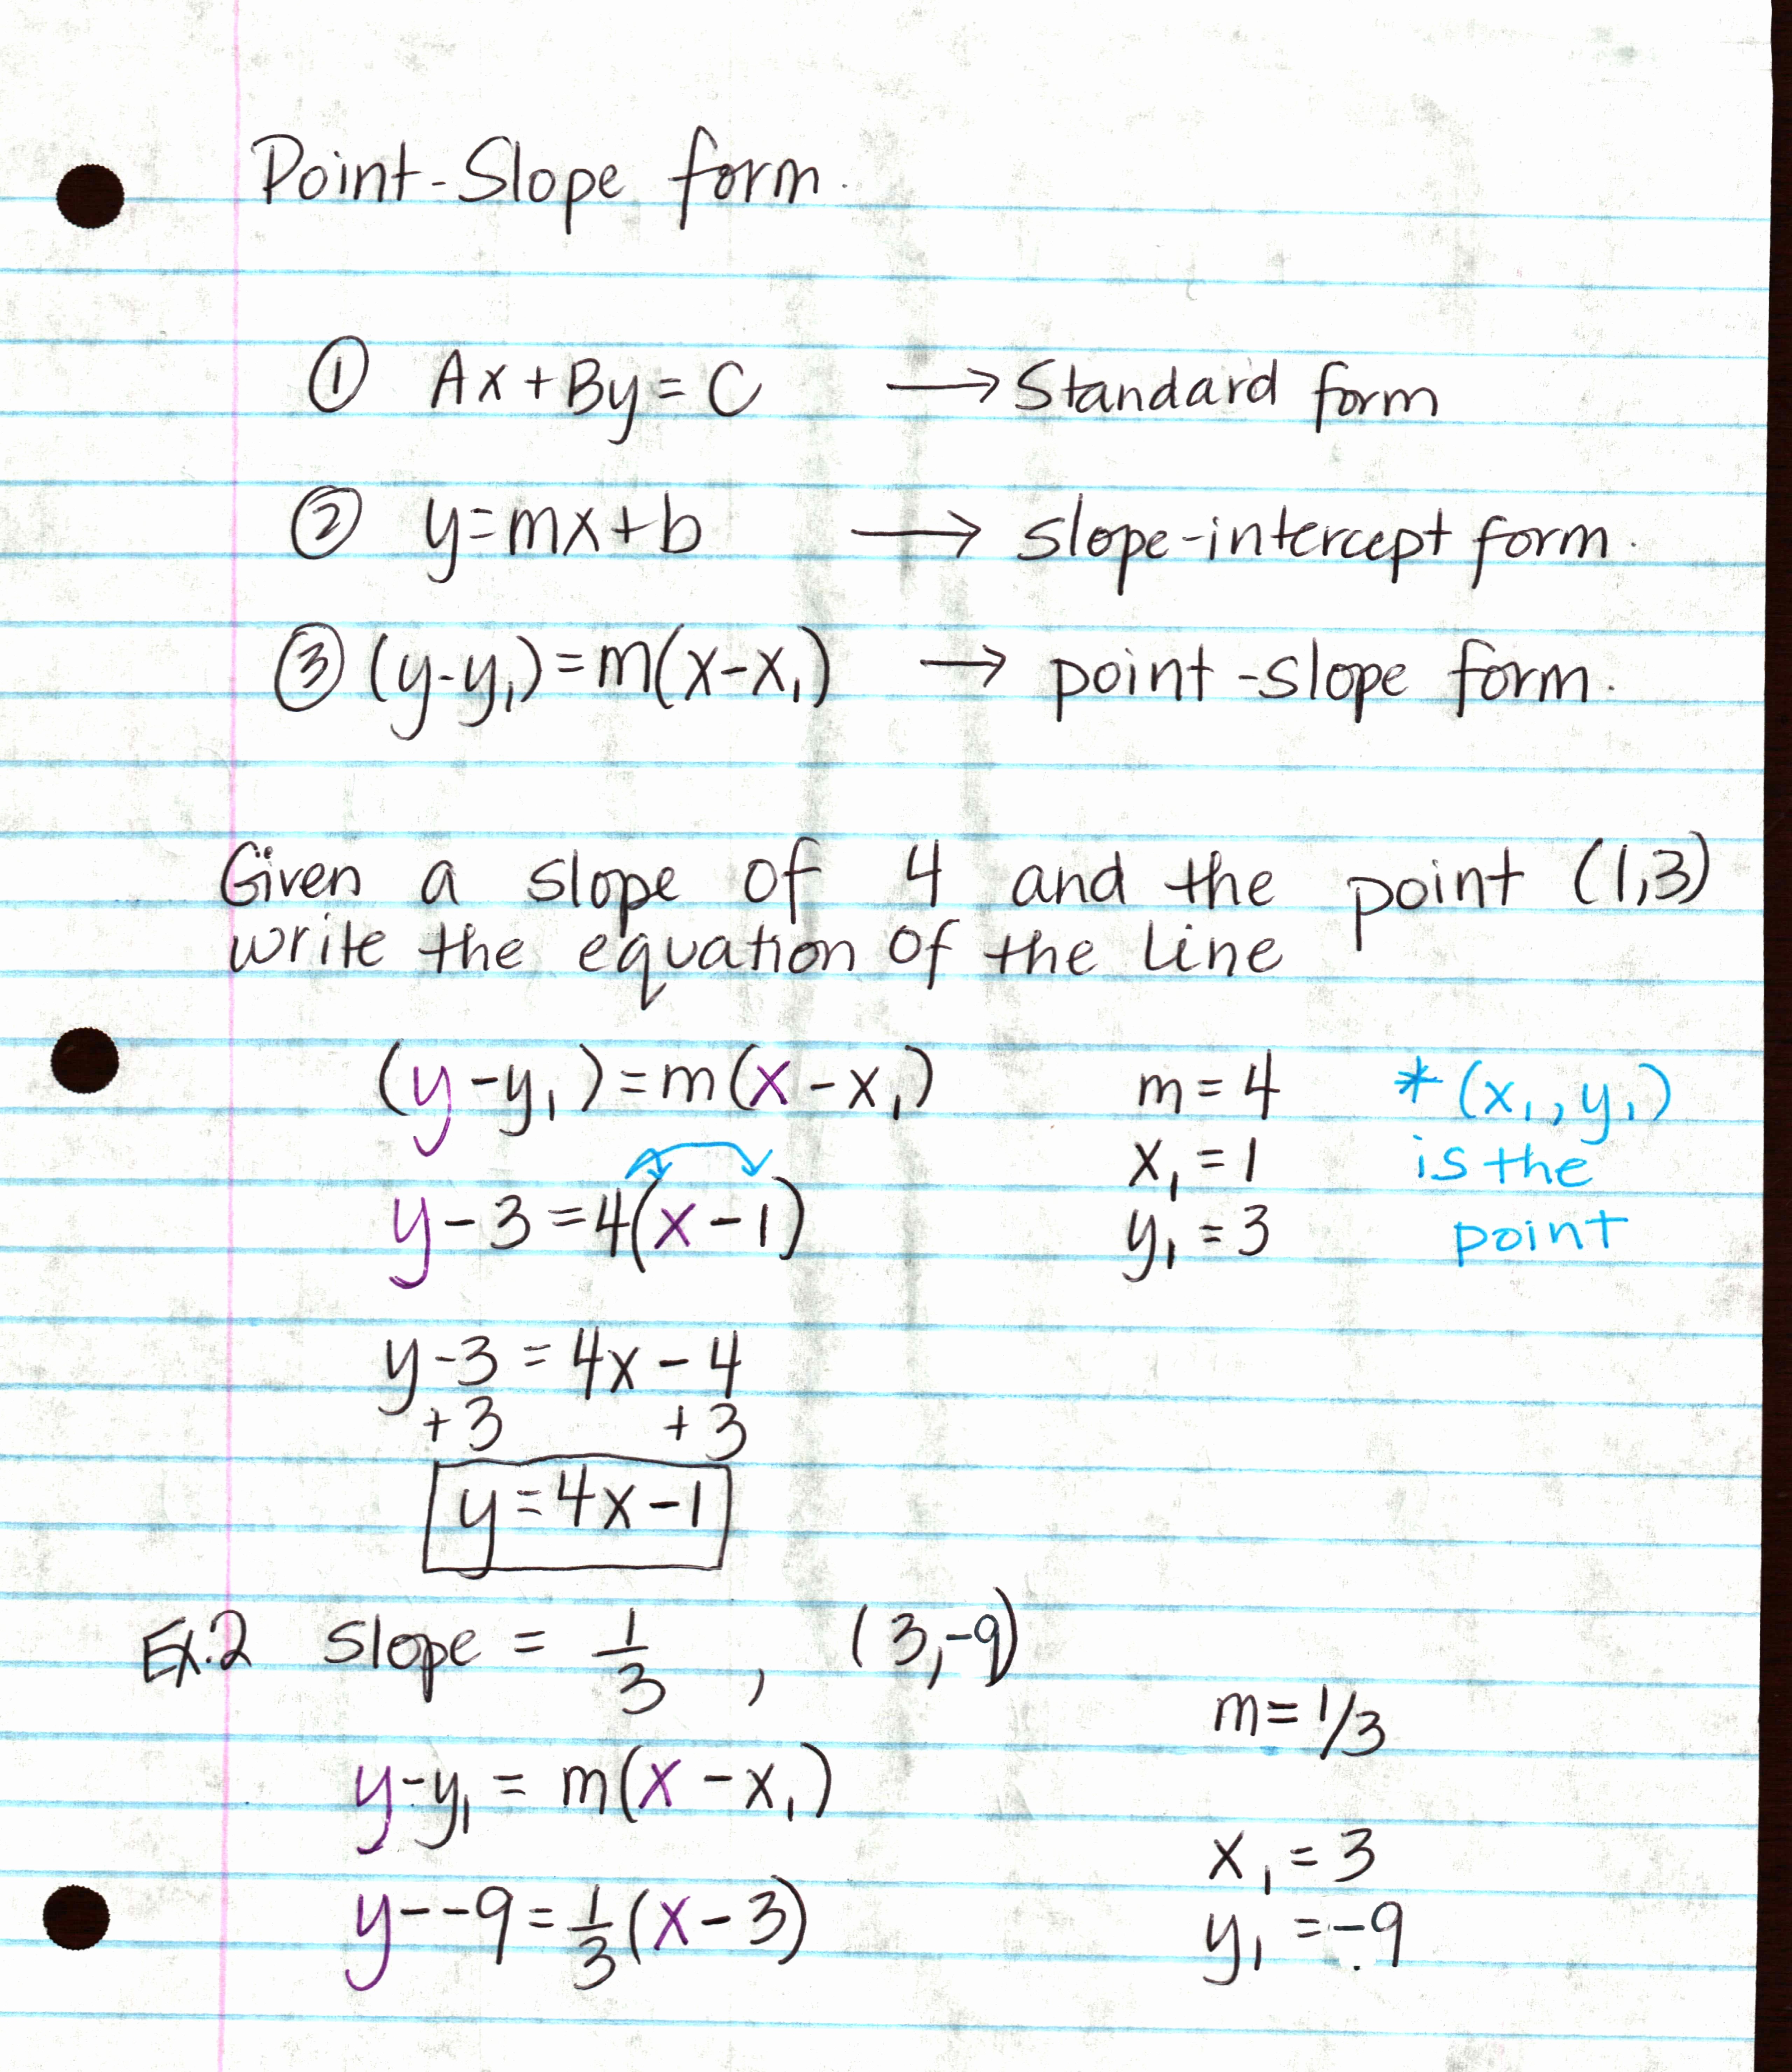 Point-Slope form.
① Ax+By=C → Standard form
② y=mx+b → slope-intercept form.
③ (y-y₁)=m(x-x₁) → point-slope form.
Given a slope of 4 and the point (1,3)
write the equation of the line
(y-y₁)=m(x-x₁) m=4 *(x₁,y₁)
x₁=1 is the
y-3=4(x-1) y₁=3 point
y-3=4x-4
+3 +3
y=4x-1
Ex.2 slope = 1/3 , (3,-9)
m=1/3
y-y₁ = m(x-x₁)
x₁=3
y--9=1/3(x-3) y₁=-9